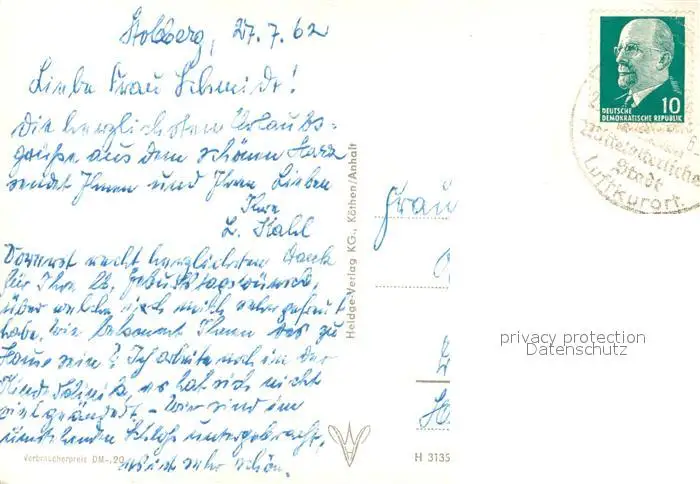 Stolberg, 27.7.62
Liebe Frau Schmidt!
Die herzlichsten Urlaubs-
grüße aus dem schönen Harz
sendet Ihnen und Ihren Lieben
Ihre
L. Kahl
Vorerst recht herzlichsten Dank
für Ihre lb. Geburtstagswünsche,
über welche ich mich sehr gefreut
habe. Wie bekommt Ihnen das zu
Hause sein? Ich arbeite noch in der
Kinderklinik, es hat sich nicht
viel geändert. - Wir sind im
umstehenden Schloß untergebracht,
es ist sehr schön.
Verbraucherpreis DM -,20
Heldge-Verlag KG., Köthen/Anhalt
H 3135
Frau
DEUTSCHE
DEMOKRATISCHE REPUBLIK
10
Mittelalterliche
Stadt
Luftkurort
privacy protection
Datenschutz